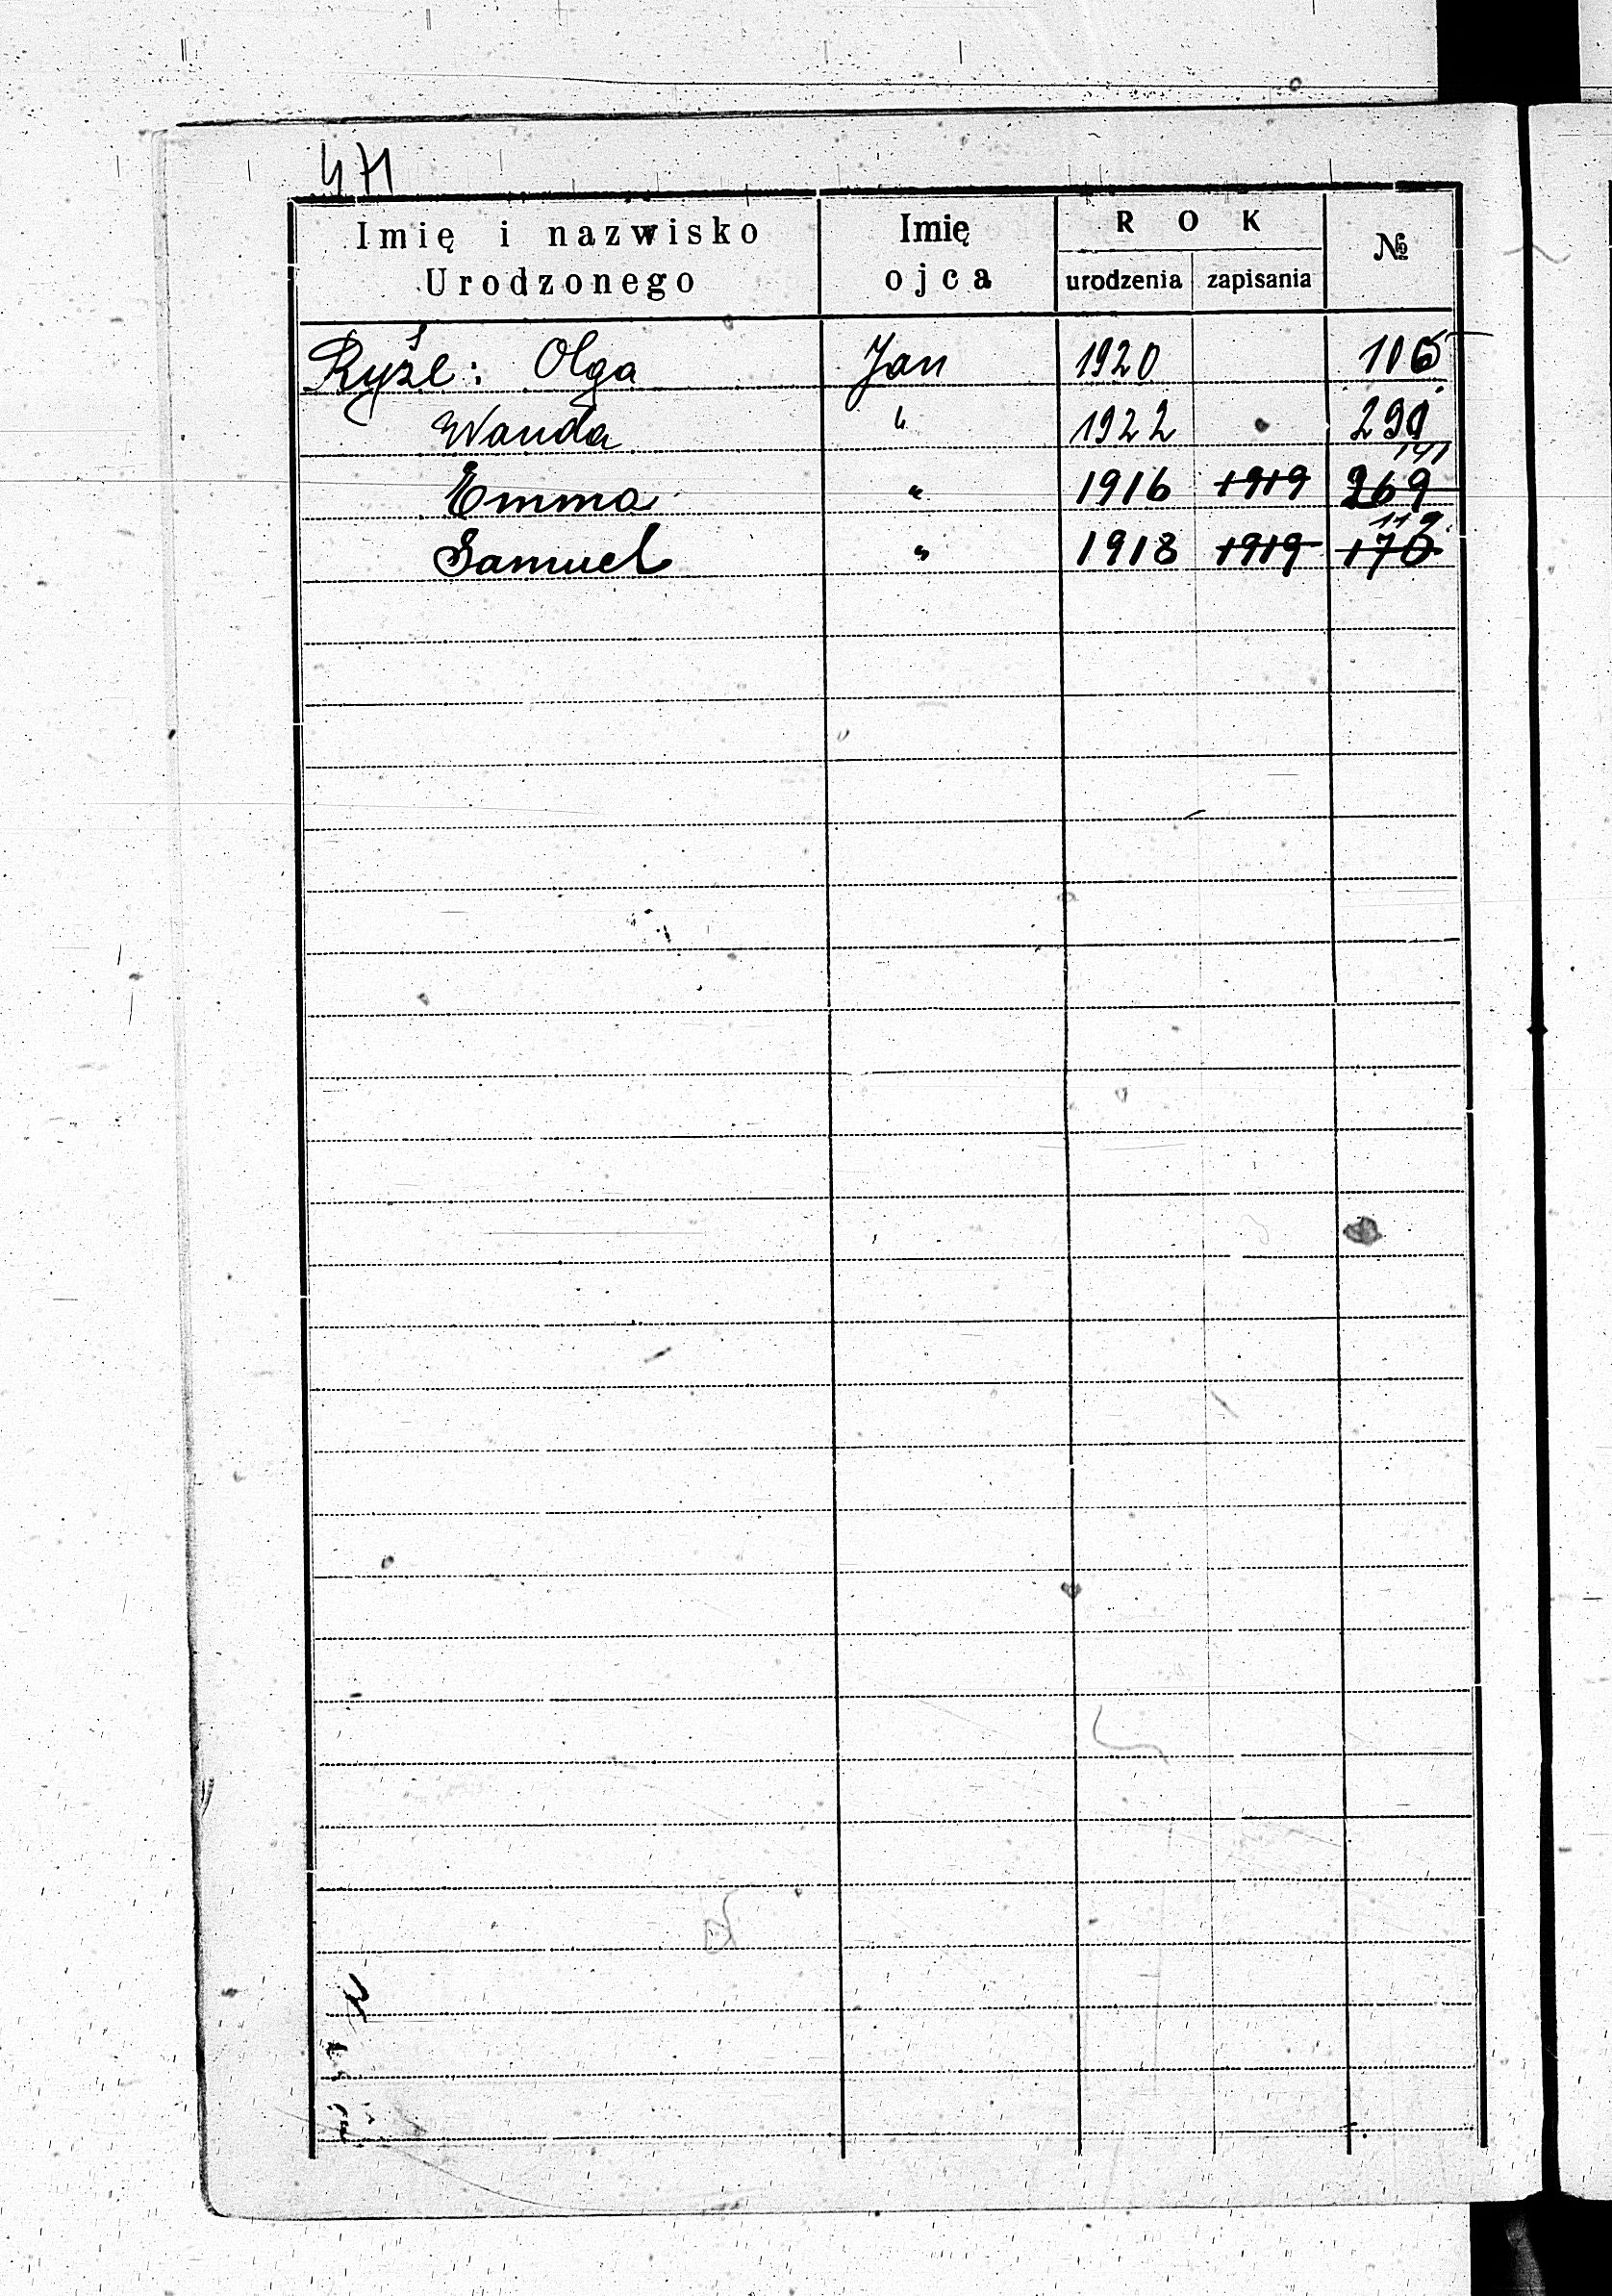 471
Imię i nazwisko Urodzonego | Imię ojca | ROK urodzenia | zapisania | №
Ryżl: Olga Jan 1920 106
Wanda " 1922 290
141
Emma " 1916 1919 269
119.
Samuel " 1918 1919 170